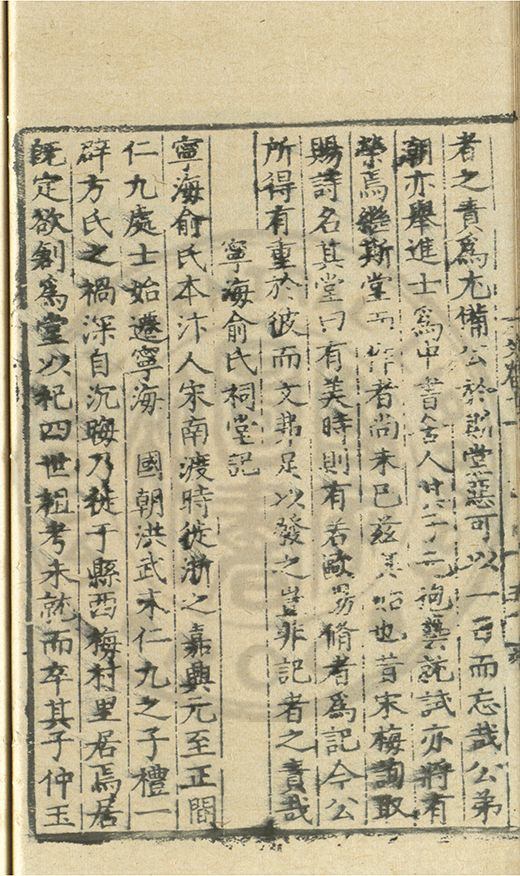 者之責為尤備公於斯堂蓋可以一日而忘哉公弟
朝亦舉進士為中書舍人廿八子二袍藝就試亦將有
榮焉繼斯堂而作者尚未已茲其始也昔宋梅詢取
賜詩名其堂曰有美時則有若歐陽脩者為記今公
所得有重於彼而文弗足以發之豈非記者之責哉
寧海俞氏祠堂記
寧海俞氏本汴人宋南渡時徙浙之嘉興元至正間
仁九處士始遷寧海 國朝洪武末仁九之子禮一
辟方氏之禍深自沉晦乃徙于縣西梅村里居焉居
既定欲創為堂以祀四世祖考未就而卒其子仲玉